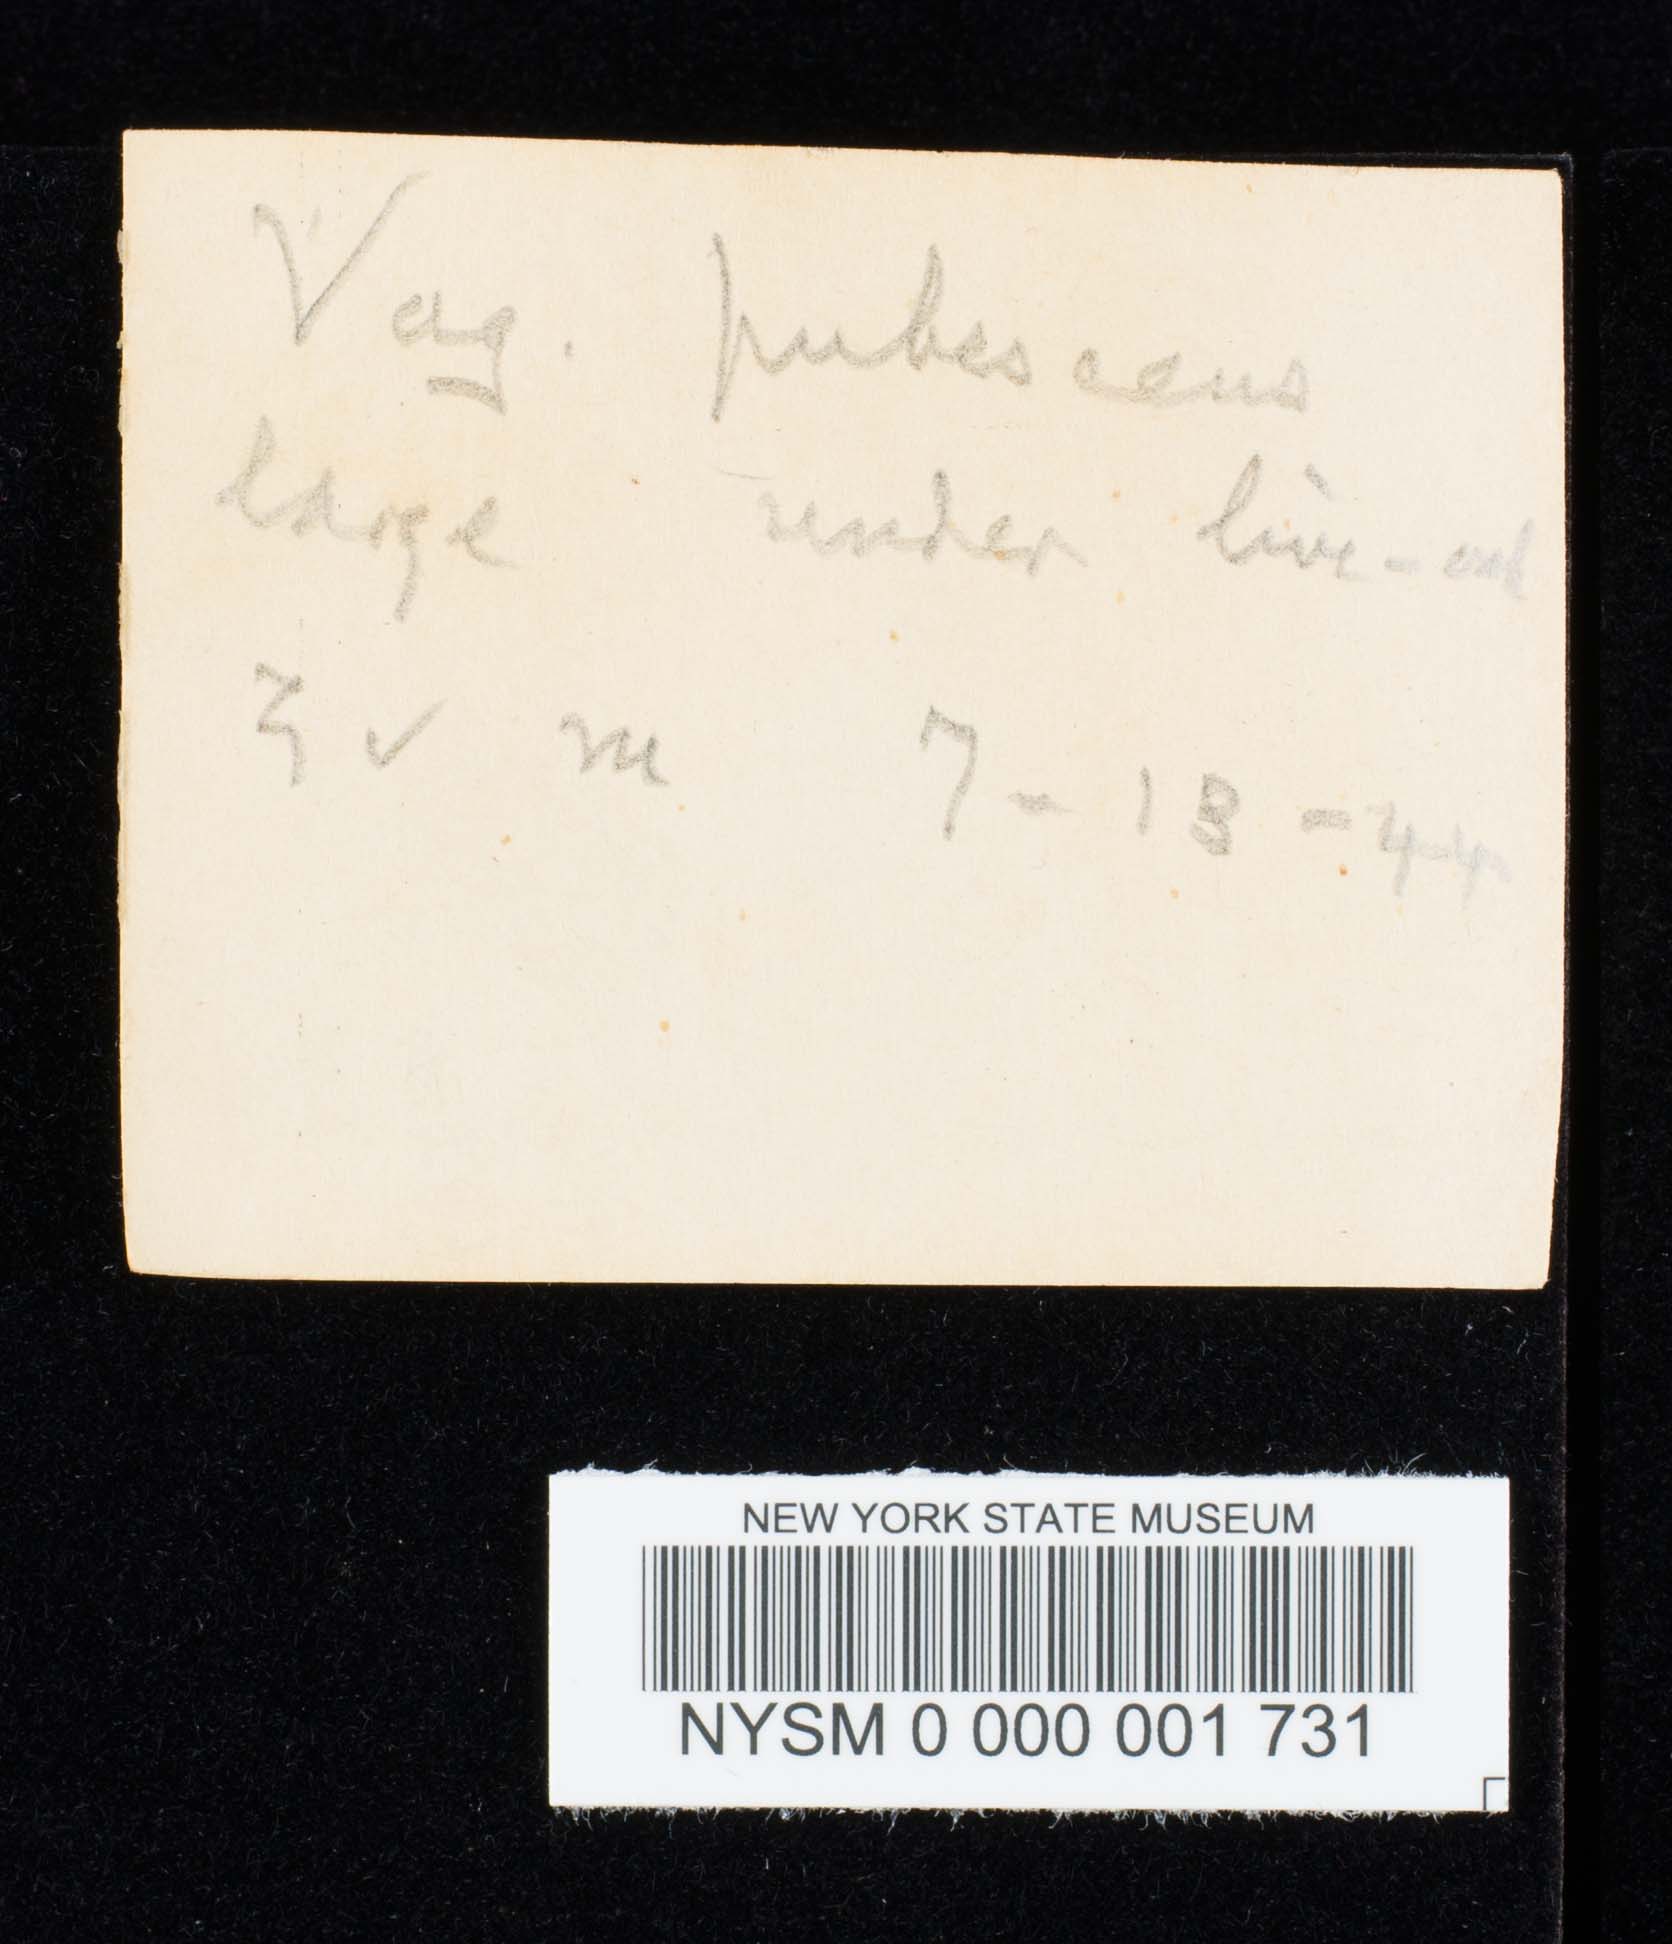 Vag. pubescens
large under live-oak
7 - 13 - 44
NEW YORK STATE MUSEUM
NYSM 0 000 001 731